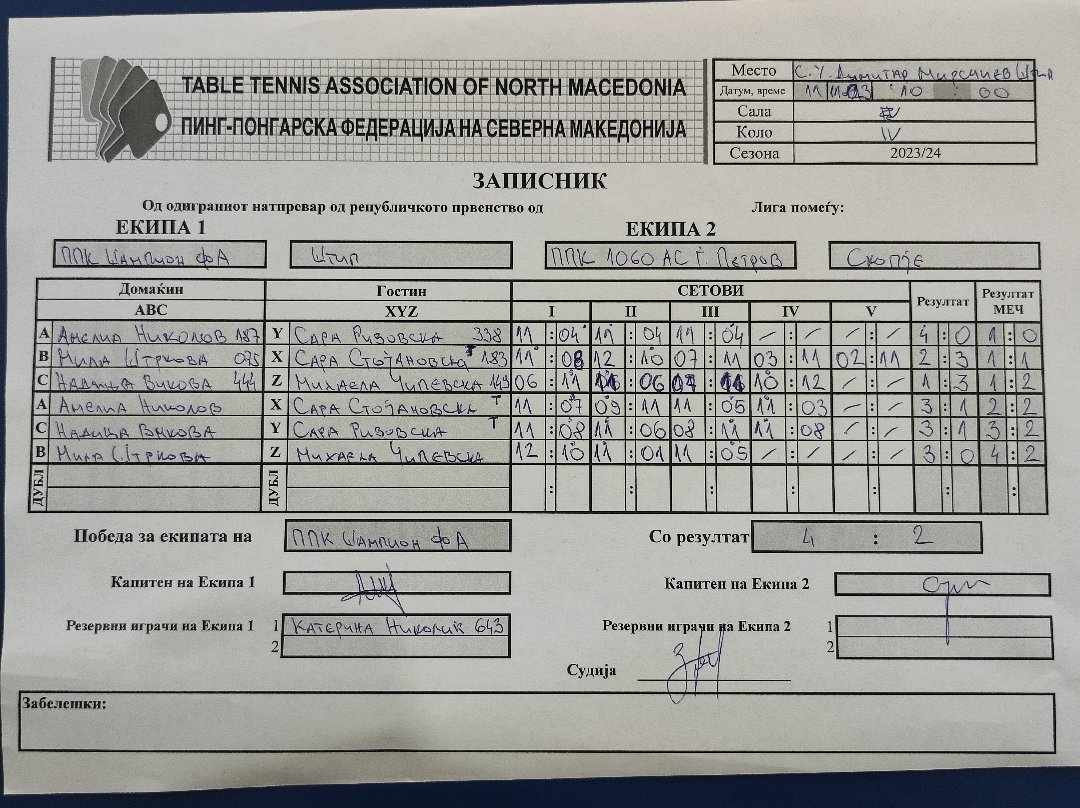 TABLE TENNIS ASSOCIATION OF NORTH MACEDONIA
ПИНГ-ПОНГАРСКА ФЕДЕРАЦИЈА НА СЕВЕРНА МАКЕДОНИЈА
Место С.У. Димитар Мирсчиев
Датум, време 11 10 : 00
Сала
Коло IV
Сезона 2023/24
ЗАПИСНИК
Од одиграниот натпревар од републичкото првенство од Лига помеѓу:
ЕКИПА 1 ЕКИПА 2
ППК Шампион ФА Штип ППК 1060 АС Г. Петров Скопје
Домаќин Гостин СЕТОВИ Резултат Резултат МЕЧ
ABC XYZ I II III IV V
A Амелиа Николов 187 Y Сара Ризовска 338 11 : 04 11 : 04 11 : 04 / : / / : / : 0 1 : 0
B Мила Штркова 075 X Сара Стојановска 183 11 : 08 12 : 10 07 : 11 03 : 11 02 : 11 2 : 3 1 : 1
C Надица Викова 444 Z Михаела Чипевска 149 06 : 11 : 06 07 : 11 10 : 12 / : / 1 : 3 1 : 2
A Амелиа Николов X Сара Стојановска Т 11 : 07 09 : 11 11 : 05 11 : 03 / : / 3 : 1 2 : 2
C Надица Викова Y Сара Ризовска Т 11 : 08 11 : 06 08 : 11 11 : 08 / : / 3 : 1 3 : 2
B Мила Штркова Z Михаела Чипевска 12 : 10 11 : 01 11 : 05 / : / / : / 3 : 0 4 : 2
ДУБЛ ДУБЛ : : : : : : :
Победа за екипата на ППК Шампион ФА Со резултат 4 : 2
Капитен на Екипа 1 Капитен на Екипа 2
Резервни играчи на Екипа 1 1 Катерина Николиќ 643 Резервни играчи на Екипа 2 1
2 2
Судија
Забелешки: